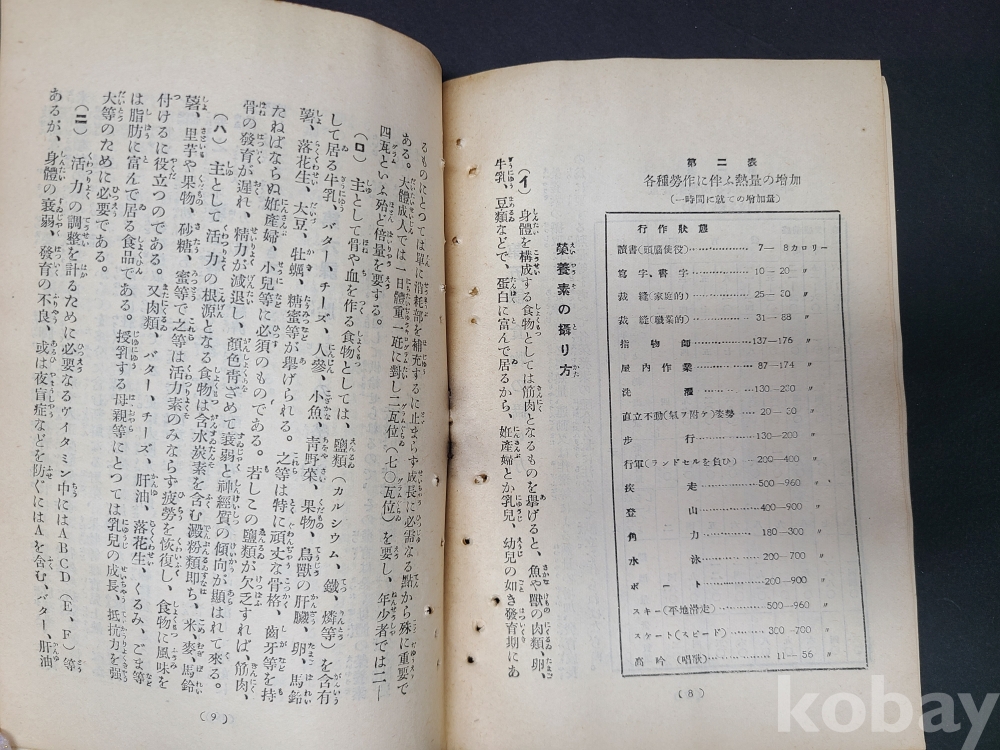 第二表
各種勞作に伴ふ熱量の增加
(一時間に就ての增加量)
行作狀態
讀書(頭腦使役)………… 7— 8カロリー
寫字、書字………………10 —20 〃
裁縫(家庭的)……………25— 30 〃
裁縫(職業的)……………31— 88 〃
指物師……………137—176 〃
屋內作業……………87—174 〃
洗濯……………130—230 〃
直立不動(氣ヲ附ケ)姿勢……20— 30 〃
步行……………130—200 〃
行軍(ランドセルを負ひ)…200—400 〃
疾走……………500—960 〃
登山……………400—900 〃
角力……………180—300 〃
水泳……………200—700 〃
ボート……………200—900 〃
スキー(平地滑走)………500—960 〃
スケート(スピード)………300—700 〃
高吟(唱歌)……………11— 56 〃
榮養素の攝り方
(イ) 身體を構成する食物としては筋肉となるものを擧げると、魚や獸の肉類、卵、
牛乳、豆類などで、蛋白に富んで居るから、姙產婦とか乳兒、幼兒の如き發育期にあ
(8)
るものにとつては單に消耗部を補充するに止まらず成長に必需なる點から殊に重要で
ある。大體成人では一日體重一瓩に對し二瓦位(七〇瓦位)を要し、年少者では二—
四瓦といふ殆ど倍量を要する。
(ロ) 主として骨や血を作る食物としては、鹽類(カルシウム、鐵、燐等)を含有
して居る牛乳、バター、チーズ、人參、小魚、靑野菜、果物、鳥獸の肝臟、卵、馬鈴
薯、落花生、大豆、牡蠣、糖蜜等が擧げられる。之等は特に頑丈な骨格、齒牙等を持
たねばならぬ姙產婦、小兒等に必須のものである。若しこの鹽類が欠乏すれば、筋肉、
骨の發育が遲れ、精力が減退し、顏色靑ざめて衰弱と神經質の傾向が顯はれて來る。
(ハ) 主として活力の根源となる食物は含水炭素を含む澱粉類卽ち、米、麥、馬鈴
薯、里芋や果物、砂糖、蜜等で之等は活力素のみならず疲勞を恢復し、食物に風味を
付けるに役立つのである。又肉類、バター、チーズ、肝油、落花生、くるみ、ごま等
は脂肪に富んで居る食品である。授乳する母親等にとつては乳兒の成長、抵抗力を强
大等のために必要である。
(ニ) 活力の調整を計るために必要なるヴイタミン中にはABCD(E、F)等
あるが、身體の衰弱、發育の不良、或は夜盲症などを防ぐにはAを含む、バター、肝油
(9)
kobay